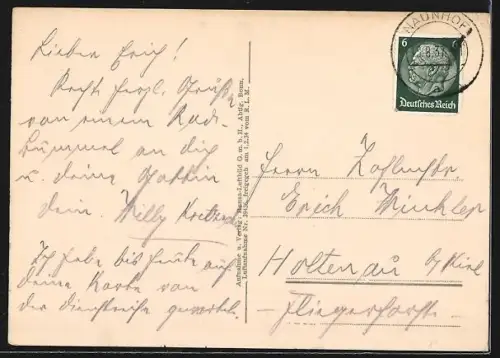 Lieber Erich!
Recht herzl. Grüße
von einem Rad-
bummel an dich
u. deine Gattin
dein Willy
Ich habe bis heute auf
deine Karte von
der Dienstreise gewartet.
Aufnahme u. Verlag: Hansa-Luftbild G. m. b. H., Abtlg. Bonn.
Luftaufnahme Nr. freigegeb. am 1.2.34 vom R. L. M.
NAUNHOF
6 6
Deutsches Reich
Herrn
Erich Winkler
Holtenau b/ Kiel
- Fliegerhorst -